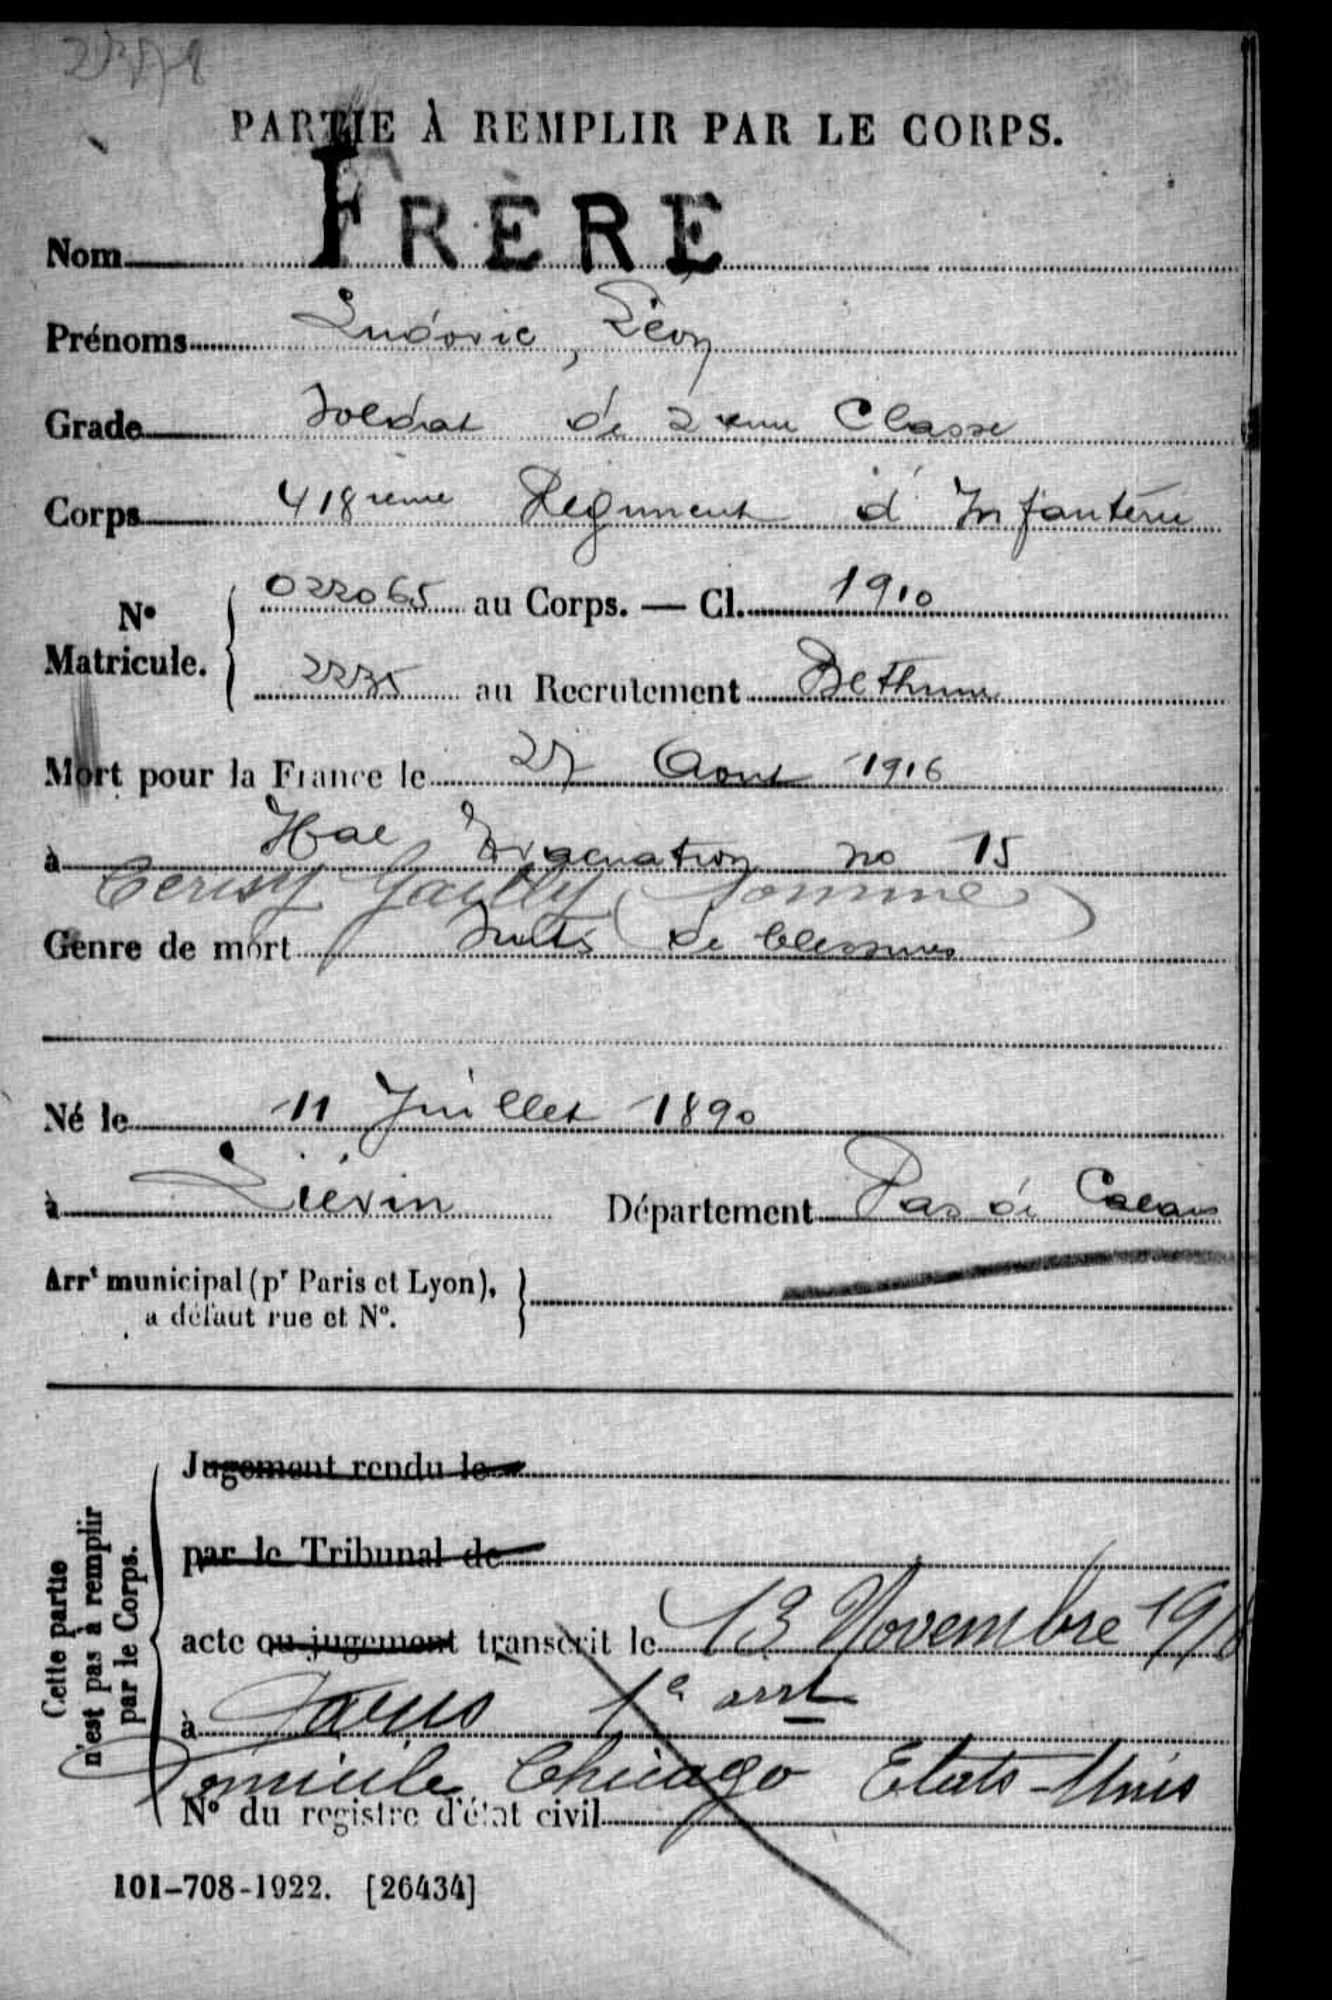 PARTIE À REMPLIR PAR LE CORPS.
Nom FRÈRE
Prénoms Ludovic, Léon
Grade Soldat de 2eme Classe
Corps 418ième Régiment d'Infanterie
N° Matricule. { 022065 au Corps. — Cl. 1910
2235 au Recrutement Bethune
Mort pour la France le 27 Aout 1916
à Hal Evacuation no 15
Cerisy Gailly (Somme)
Genre de mort Suites de blessures
Né le 11 Juillet 1890
à Liévin Département Pas de Calais
Arrt municipal (pr Paris et Lyon), }
a défaut rue et N°.
Cette partie n'est pas à remplir par le Corps.
Jugement rendu le
par le Tribunal de
acte ou jugement transcrit le 13 Novembre 191
à Paris 1e arrt
Domicile Chicago Etats-Unis
N° du registre d'état civil
101-708-1922. [26434]